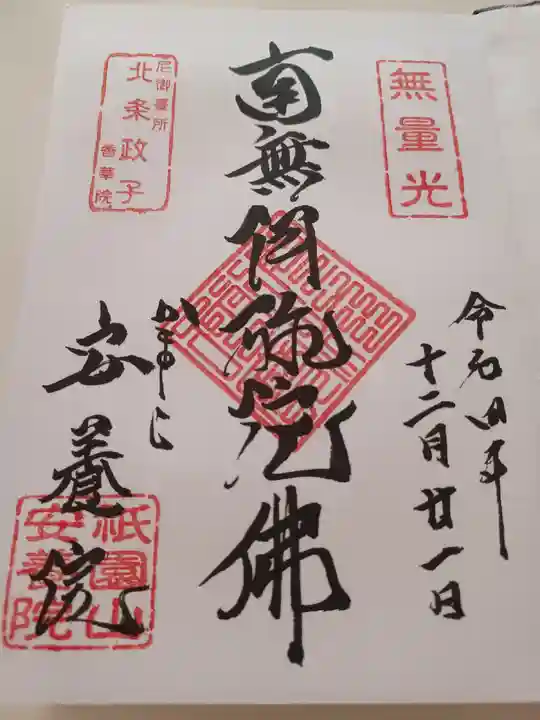 無量光
令和四年
十二月廿一日
南無阿弥陀佛
尼御臺所
北条政子
香華院
かまくら
安養院
祇園山
安養院